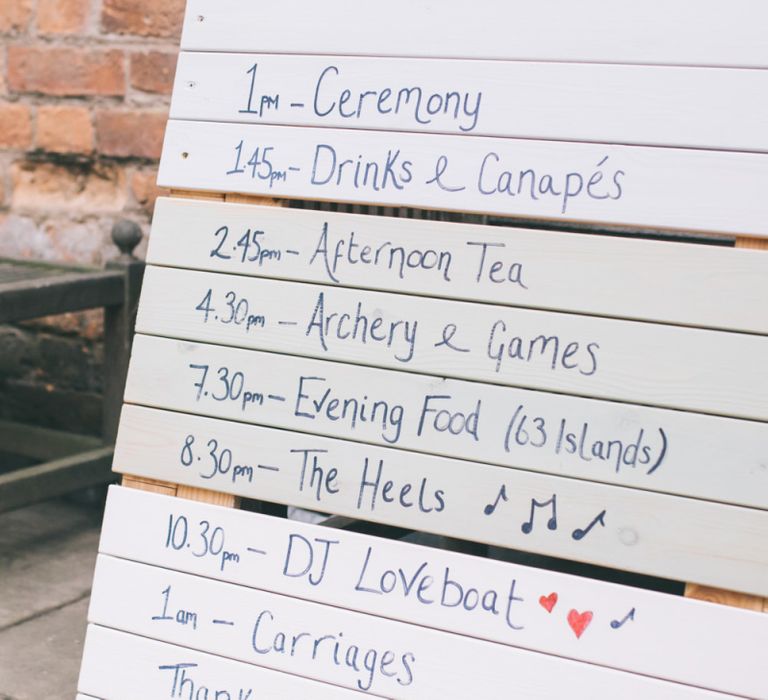 1pm - Ceremony
1.45pm - Drinks & Canapés
2.45pm - Afternoon Tea
4.30pm - Archery & Games
7.30pm - Evening Food (63 Islands)
8.30pm - The Heels
10.30pm - DJ Loveboat
1am - Carriages